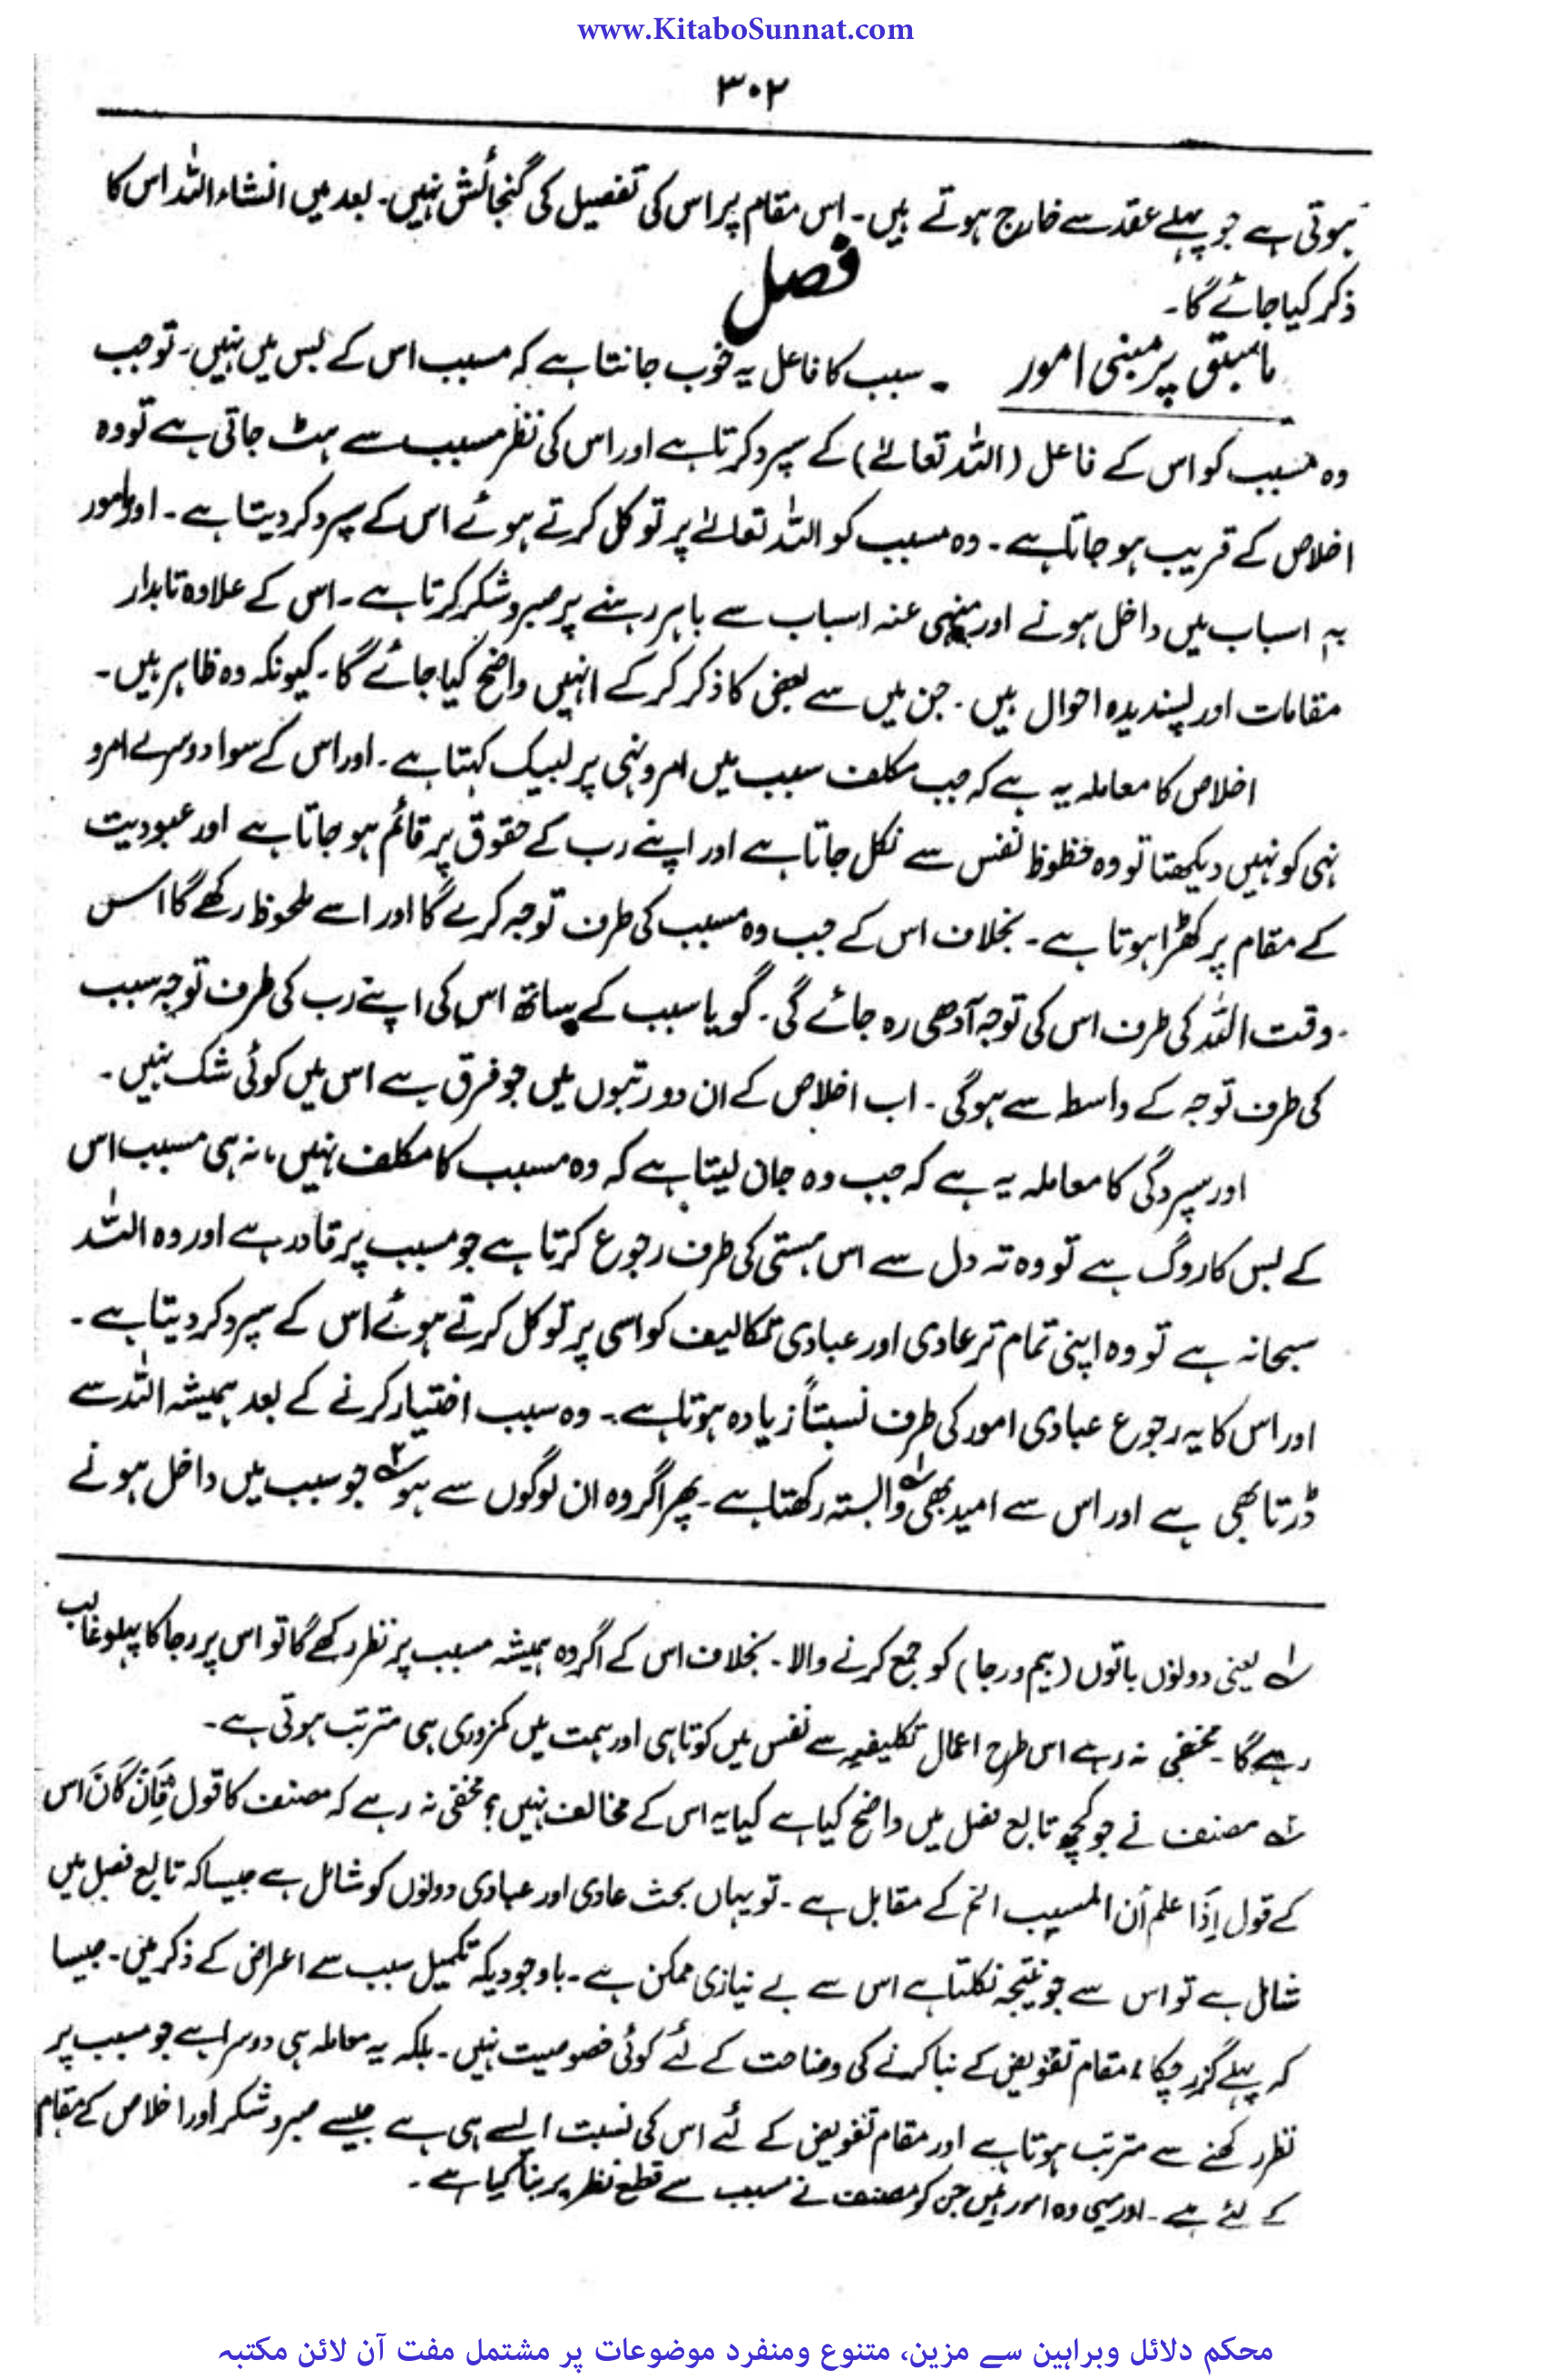 www.KitaboSunnat.com
۳۰۲
ہوتی ہے جو پہلے عقد سے خارج ہوتے ہیں۔ اس مقام پر اس کی تفصیل کی گنجائش نہیں۔ بعد میں انشاء اللہ اس کا
ذکر کیا جائے گا۔
فصل
ماسبق پر مبنی امور ۔ سبب کا فاعل یہ خوب جانتا ہے کہ مسبب اس کے بس میں نہیں۔ تو جب
وہ مسبب کو اس کے فاعل (اللہ تعالےٰ) کے سپرد کرتا ہے اور اس کی نظر مسبب سے ہٹ جاتی ہے تو وہ
اخلاص کے قریب ہو جاتا ہے۔ وہ مسبب کو اللہ تعالےٰ پر توکل کرتے ہوئے اس کے سپرد کر دیتا ہے۔ اور مامور
بہ اسباب میں داخل ہونے اور منہی عنہ اسباب سے باہر رہنے پر صبر و شکر کرتا ہے۔ اس کے علاوہ تابدار
مقامات اور پسندیدہ احوال ہیں۔ جن میں سے بعض کا ذکر کر کے انہیں واضح کیا جائے گا۔ کیونکہ وہ ظاہر ہیں۔
اخلاص کا معاملہ یہ ہے کہ جب مکلف سبب میں امر و نہی پر لبیک کہتا ہے۔ اور اس کے سوا دوسرے امر و
نہی کو نہیں دیکھتا تو وہ حظوظ نفس سے نکل جاتا ہے اور اپنے رب کے حقوق پر قائم ہو جاتا ہے اور عبودیت
کے مقام پر کھڑا ہوتا ہے۔ بخلاف اس کے جب وہ مسبب کی طرف توجہ کرے گا اور اسے ملحوظ رکھے گا اس
وقت اللہ کی طرف اس کی توجہ آدھی رہ جائے گی۔ گویا سبب کے ساتھ اس کی اپنے رب کی طرف توجہ سبب
کی طرف توجہ کے واسطہ سے ہوگی۔ اب اخلاص کے ان دو رتبوں میں جو فرق ہے اس میں کوئی شک نہیں۔
اور سپردگی کا معاملہ یہ ہے کہ جب وہ جان لیتا ہے کہ وہ مسبب کا مکلف نہیں، نہ ہی مسبب اس
کے بس کا روگ ہے تو وہ تہ دل سے اس ہستی کی طرف رجوع کرتا ہے جو مسبب پر قادر ہے اور وہ اللہ
سبحانہ ہے تو وہ اپنی تمام تر عادی اور عبادی تکالیف کو اسی پر توکل کرتے ہوئے اس کے سپرد کر دیتا ہے۔
اور اس کا یہ رجوع عبادی امور کی طرف نسبتاً زیادہ ہوتا ہے۔ وہ سبب اختیار کرنے کے بعد ہمیشہ اللہ سے
ڈرتا بھی ہے اور اس سے امید بھی ؎۱ وابستہ رکھتا ہے۔ پھر اگر وہ ان لوگوں سے ہو ؎۲ جو سبب میں داخل ہونے
؎۱ یعنی دونوں باتوں (بیم و رجا) کو جمع کرنے والا۔ بخلاف اس کے اگر وہ ہمیشہ مسبب پر نظر رکھے گا تو اس پر رجا کا پہلو غالب
رہے گا۔ مخفی نہ رہے اس طرح اعمال تکلیفیہ سے نفس میں کوتاہی اور ہمت میں کمزوری ہی مترتب ہوتی ہے۔
؎ مصنف نے جو کچھ تابع فصل میں واضح کیا ہے کیا یہ اس کے مخالف نہیں؟ مخفی نہ رہے کہ مصنف کا قول فَاِنْ کَانَ اس
کے قول اِذَا علم أن المسبب الخ کے مقابل ہے۔ تو یہاں بحث عادی اور عبادی دونوں کو شامل ہے جیسا کہ تابع فصل میں
شامل ہے تو اس سے جو نتیجہ نکلتا ہے اس سے بے نیازی ممکن ہے۔ باوجودیکہ تکمیل سبب سے اعراض کے ذکر میں۔ جیسا
کہ پہلے گزر چکا، مقام تفویض کے بنا کرنے کی وضاحت کے لئے کوئی خصوصیت نہیں۔ بلکہ یہ معاملہ ہی دوسرا ہے جو مسبب پر
نظر رکھنے سے مترتب ہوتا ہے اور مقام تفویض کے لئے اس کی نسبت ایسے ہی ہے جیسے صبر و شکر اور اخلاص کے مقام
کے لئے ہے۔ اور یہی وہ امور ہیں جن کو مصنف نے مسبب سے قطع نظر پر بنا کیا ہے۔
محکم دلائل وبراہین سے مزین، متنوع ومنفرد موضوعات پر مشتمل مفت آن لائن مکتبہ